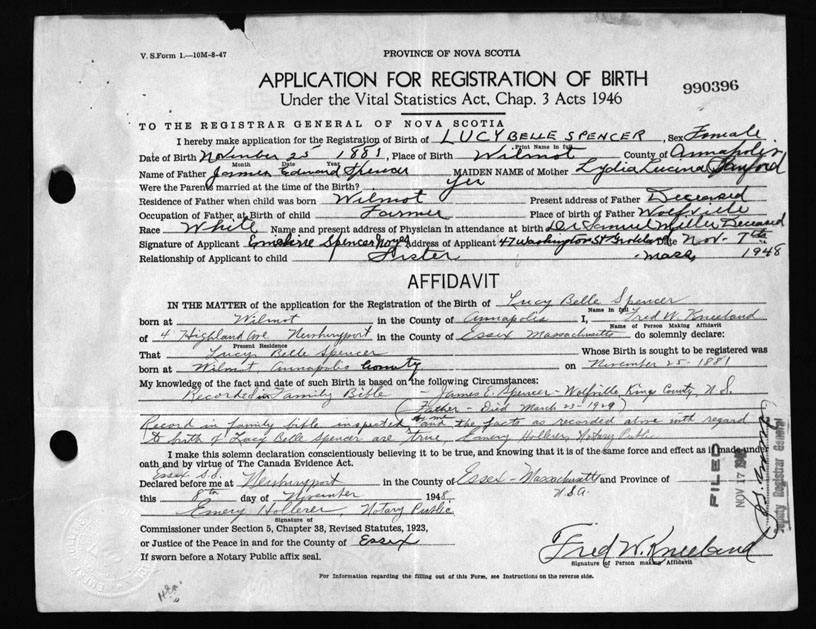 V. S. Form 1.—10M-8-47
PROVINCE OF NOVA SCOTIA
APPLICATION FOR REGISTRATION OF BIRTH
990396
Under the Vital Statistics Act, Chap. 3 Acts 1946
TO THE REGISTRAR GENERAL OF NOVA SCOTIA
I hereby make application for the Registration of Birth of LUCY BELLE SPENCER, Sex Female
Print Name in full
Date of Birth November 25 1881, Place of Birth Wilmot County of Annapolis
Month Date Year
Name of Father James Edward Spencer MAIDEN NAME of Mother Lydia Lucina
Were the Parents married at the time of the Birth? Yes
Residence of Father when child was born Wilmot Present address of Father Deceased
Occupation of Father at Birth of child Farmer Place of birth of Father Wolfville
Race White Name and present address of Physician in attendance at birth Dr Samuel Miller Deceased
Signature of Applicant Spencer Noyes Address of Applicant 47 Washington St Date Nov. 7th
Relationship of Applicant to child Sister Mass, 1948
AFFIDAVIT
IN THE MATTER of the application for the Registration of the Birth of Lucy Belle Spencer
Name in full
born at Wilmot in the County of Annapolis I, Fred W. Kneeland
Name of Person Making Affidavit
of 4 Highland Ave Newburyport in the County of Essex Massachusetts do solemnly declare:
Present Residence
That Lucy Belle Spencer Whose Birth is sought to be registered was
born at Wilmot Annapolis County on November 25 - 1881
My knowledge of the fact and date of such Birth is based on the following Circumstances:
Recorded in Family Bible - James E. Spencer - Wolfville, Kings County, N. S.
(Father - Died March 23 - 1929)
Record in family bible inspected by me and the facts as recorded above with regard
to birth of Lucy Belle Spencer are true, Emery Hollerer, Notary Public
I make this solemn declaration conscientiously believing it to be true, and knowing that it is of the same force and effect as if made under
oath and by virtue of The Canada Evidence Act.
Essex S.S.
Declared before me at Newburyport in the County of Essex - Massachusetts and Province of
U.S.A.
this 8th day of November 1948
Emery Hollerer Notary Public
Signature of
Commissioner under Section 5, Chapter 38, Revised Statutes, 1923,
or Justice of the Peace in and for the County of Essex
If sworn before a Notary Public affix seal.
Fred W. Kneeland
Signature of Person making Affidavit
For Information regarding the filling out of this Form, see Instructions on the reverse side.
FILED
NOV 17 1948
Deputy Registrar General